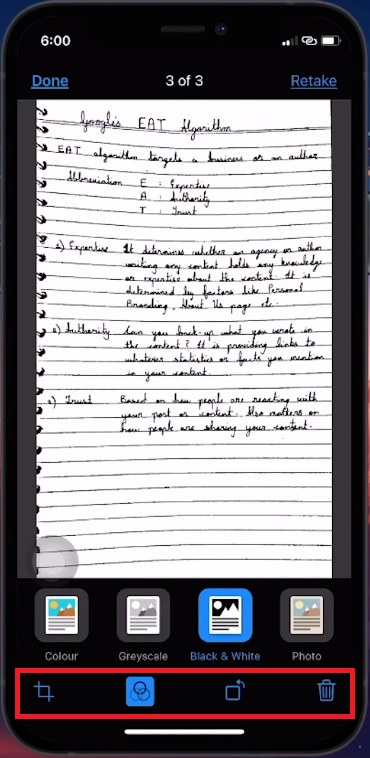 6:00
Done 3 of 3 Retake
Google's EAT Algorithm
EAT algorithm targets a business or an author
Abbreviation E : Expertise
A : Authority
T : Trust
1) Expertise It determines whether an agency or author
writing any content holds any knowledge
or expertise about the content. It is
determined by factors like Personal
Branding, About Us page etc.
Authority Can you back-up what you wrote in
the content? It is providing links to
whatever statistics or facts you mention
in your content.
Trust Based on how people are reacting with
your post or content. Also matters on
how people are sharing your content.
Colour Greyscale Black & White Photo